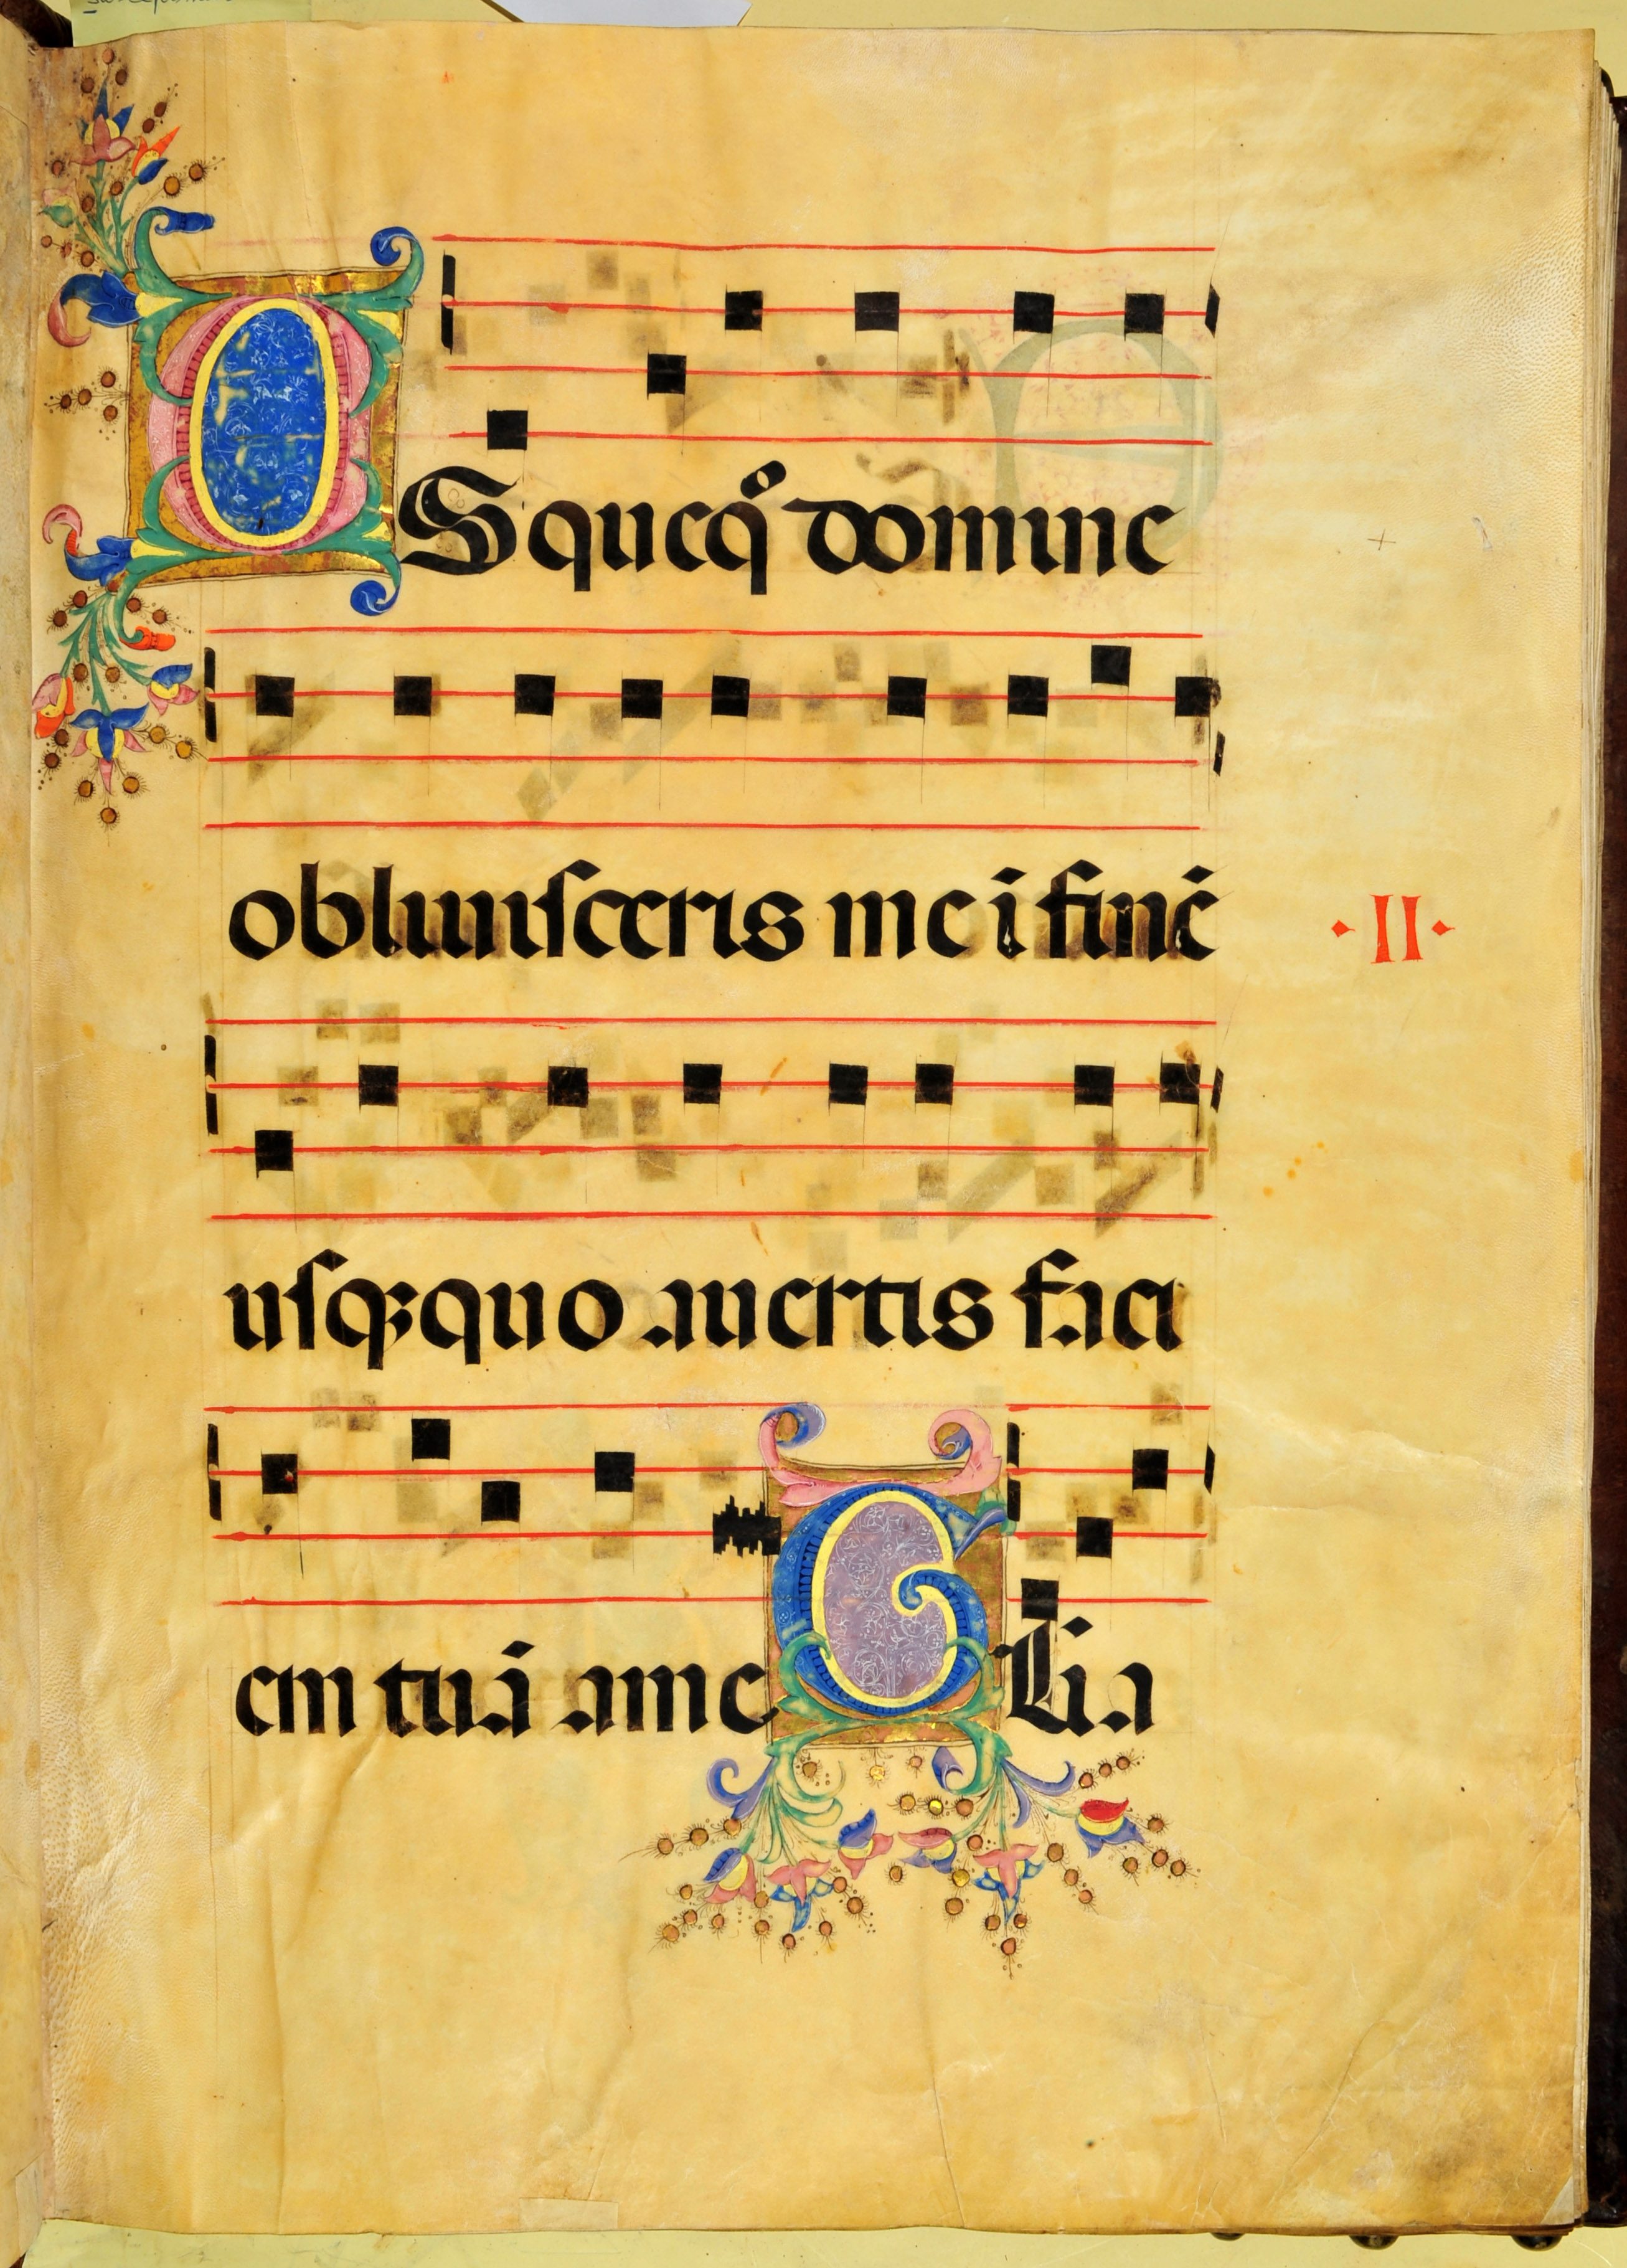 USqueq̊ domine
obliuisceris me ī finē
·II·
usqꝫquo auertis faci
em tuā a me Glia